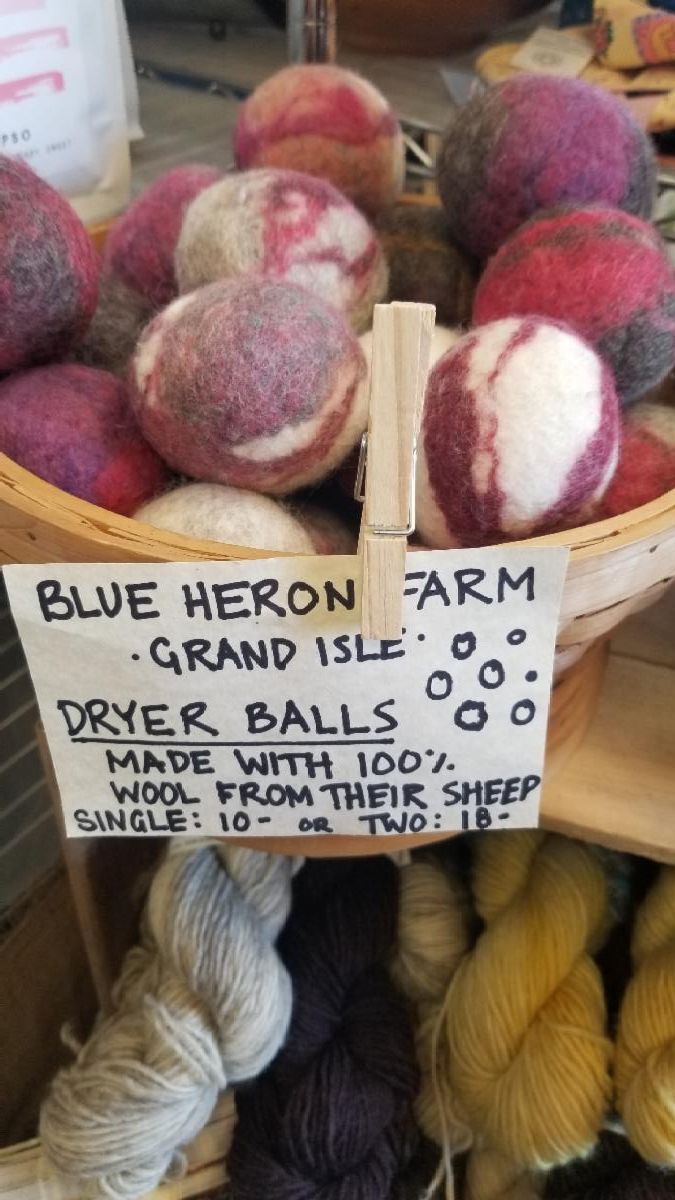 PSO
BLUE HERON FARM
·GRAND ISLE·
DRYER BALLS
MADE WITH 100%
WOOL FROM THEIR SHEEP
SINGLE: 10- OR TWO: 18-